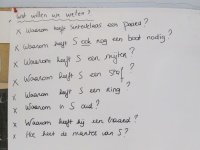 Wat willen we weten?
x Waarom heeft Sinterklaas een paard?
x Waarom heeft S ook nog een boot nodig?
x Waarom heeft S een mijter?
x Waarom heeft S een staf?
x Waarom heeft S een ring?
x Waarom is S oud?
x Waarom heeft hij een baard?
x Hoe heet de mantel van S?